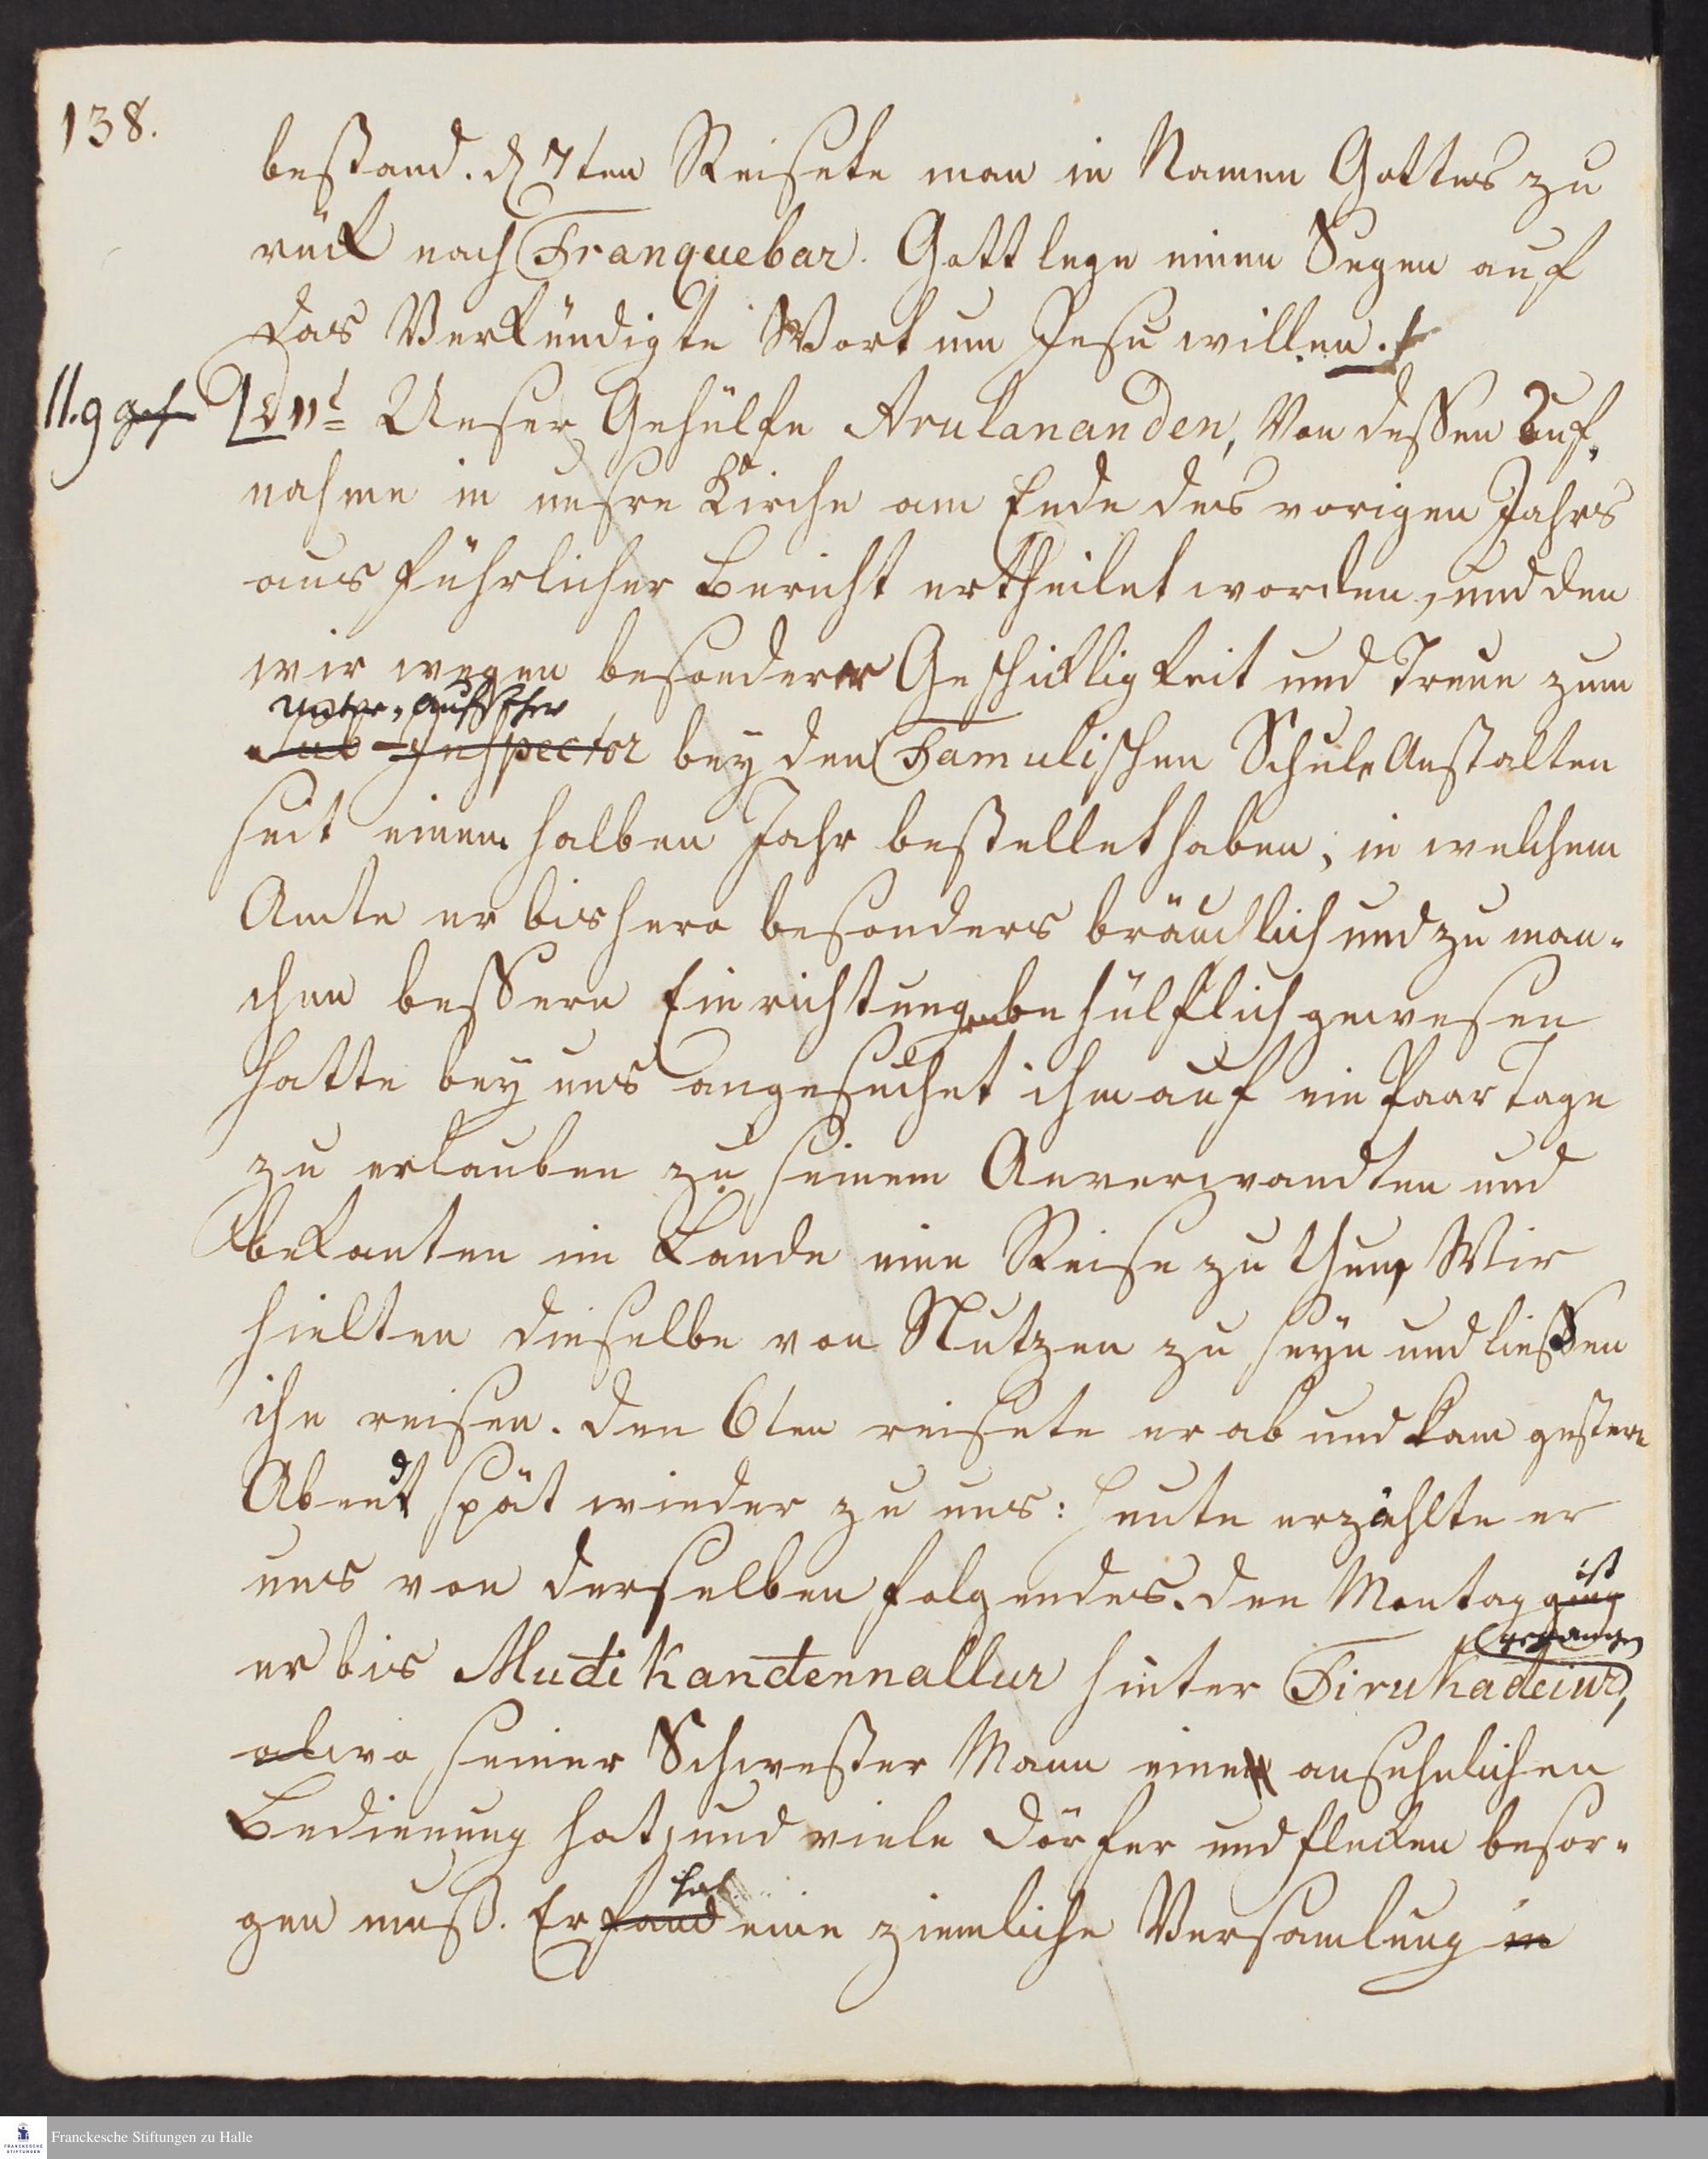 138.
bestand. d 7ten Reisete man in Namen Gottes zu
rück nach Tranquebar. Gott lege einen Segen auf
das Verkündigte Wort um Jesu willen.
11. 9
d 11t Unser Gehülfe Arulananden, Von dessen Auf-
nahme in unsre Kirche am Ende des vorigen Jahrs
ausführlicher Bericht ertheilet worden, und den
wir wegen besonderer Geschickligkeit und Treue zum
Unter-Aufseher
Sub-Inspector bey den Tamulischen Schul-Anstalten
seit einem halben Jahr bestellet haben, in welchem
Amte er bishero besonders bräuchlich und zu man-
chen bessern Einrichtungen behülflich gewesen
hatte bey uns angesuchet ihm auf ein Paar Tage
zu erlauben zu seinem Anverwandten und
Bekanten im Lande eine Reise zu thun, Wir
hielten dieselbe von Nutzen zu seyn und liessen
ihn reisen. Den 6ten reisete er ab und kam gestern
Abend spät wieder zu uns: heute erzählte er
uns von derselben folgendes. Den Montag ging
ist
gegangen
er bis Mudikandennallur hinter Tirukadeiur,
alwo seiner Schwester Mann einen ansehnlichen
Bedienung hat, und viele Dörfer und Flecken besor-
hat
gen muß. Er fand eine ziemliche Versamlung in
Franckesche Stiftungen zu Halle
FRANCKESCHE STIFTUNGEN